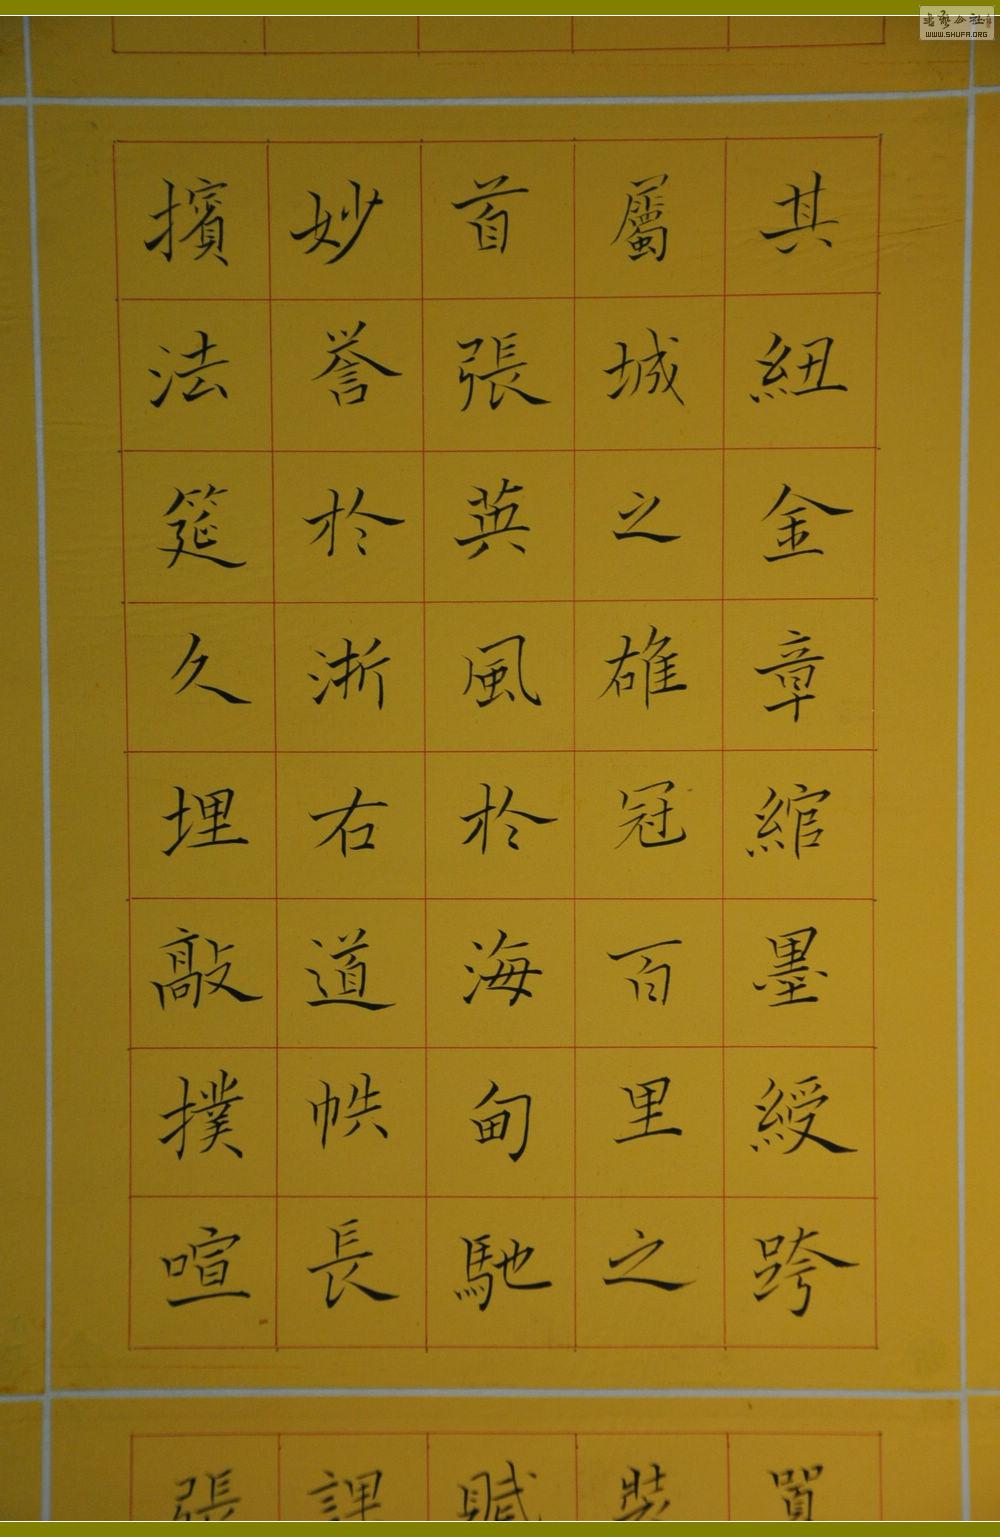 其紐金章綰墨綬跨
屬城之雄冠百里之
首張英風於海甸馳
妙譽於浙右道帙長
擯法筵久埋敲撲喧
買
裝
賦
課
張
WWW.SHUFA.ORG